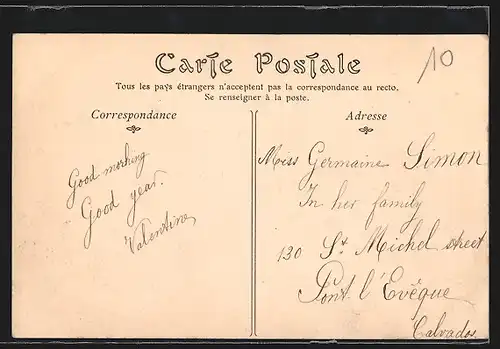 10
Carte Postale
Tous les pays étrangers n'acceptent pas la correspondance au recto.
Se renseigner à la poste.
Correspondance
Good morning
Good year.
Valentine
Adresse
Miss Germaine Simon
In her family
130 St Michel street
Pont l'Evêque
Calvados